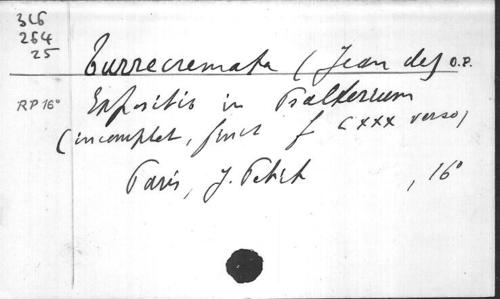 316
254
25
Turrecremata (Jean de) O.P.
RP 16°
Expositio in Psalterium
(incomplet, finit f CXXX verso)
Paris, J. Petit , 16°